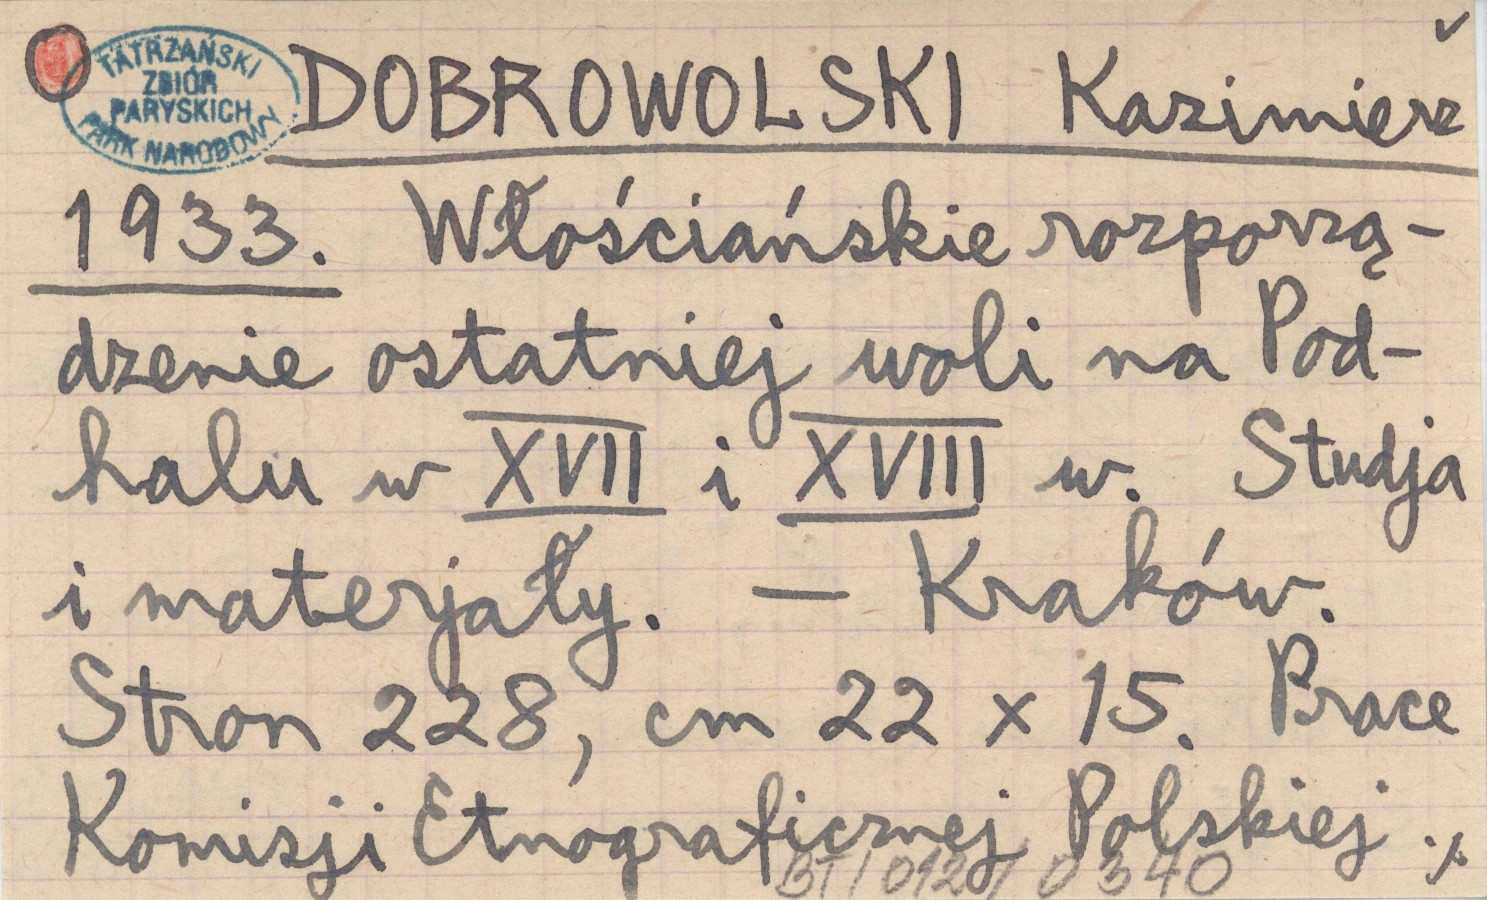 TATRZAŃSKI
ZBIÓR
PARYSKICH
PARK NARODOWY
DOBROWOLSKI Kazimierz
1933. Włościańskie rozporzą-
dzenie ostatniej woli na Pod-
halu w XVII i XVIII w. Studja
i materjały. — Kraków.
Stron 228, cm 22 x 15. Prace
Komisji Etnograficznej Polskiej ./.
BT/012/0340